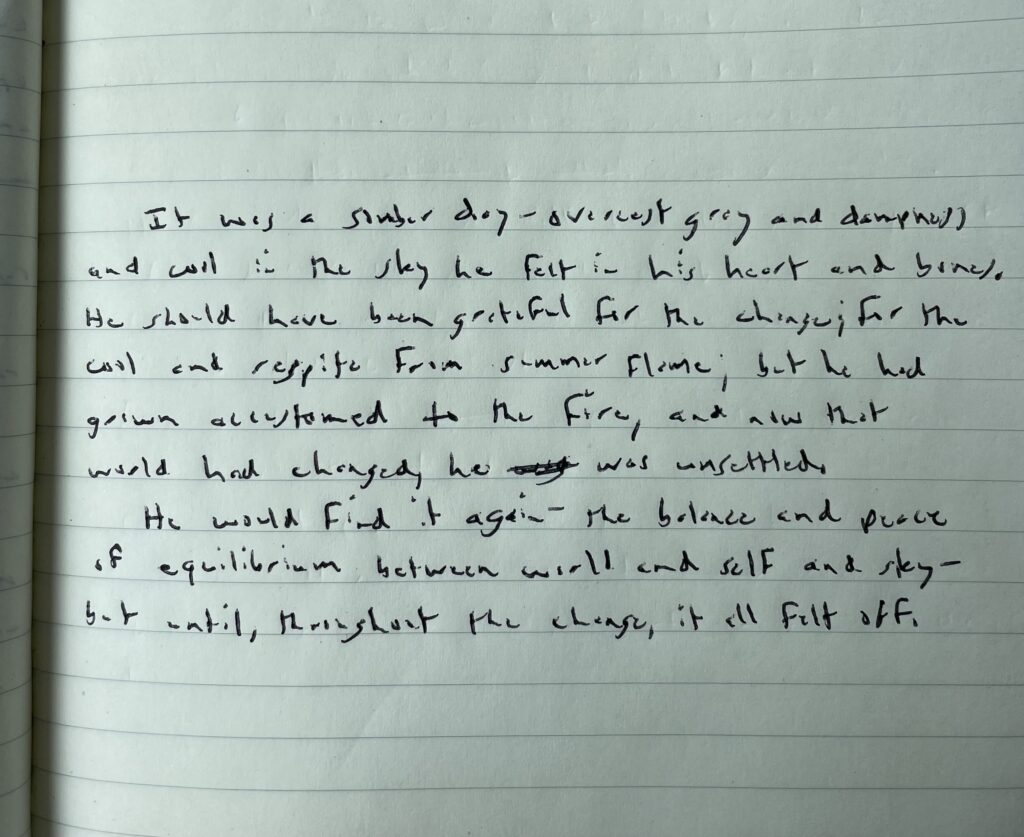 It was a somber day - overcast grey and dampness
and cool in the sky he felt in his heart and bones.
He should have been grateful for the change; for the
cool and respite from summer flame; but he had
grown accustomed to the fire, and now that
world had changed, he was unsettled.
He would find it again - the balance and peace
of equilibrium between world and self and sky -
but until, throughout the change, it all felt off.